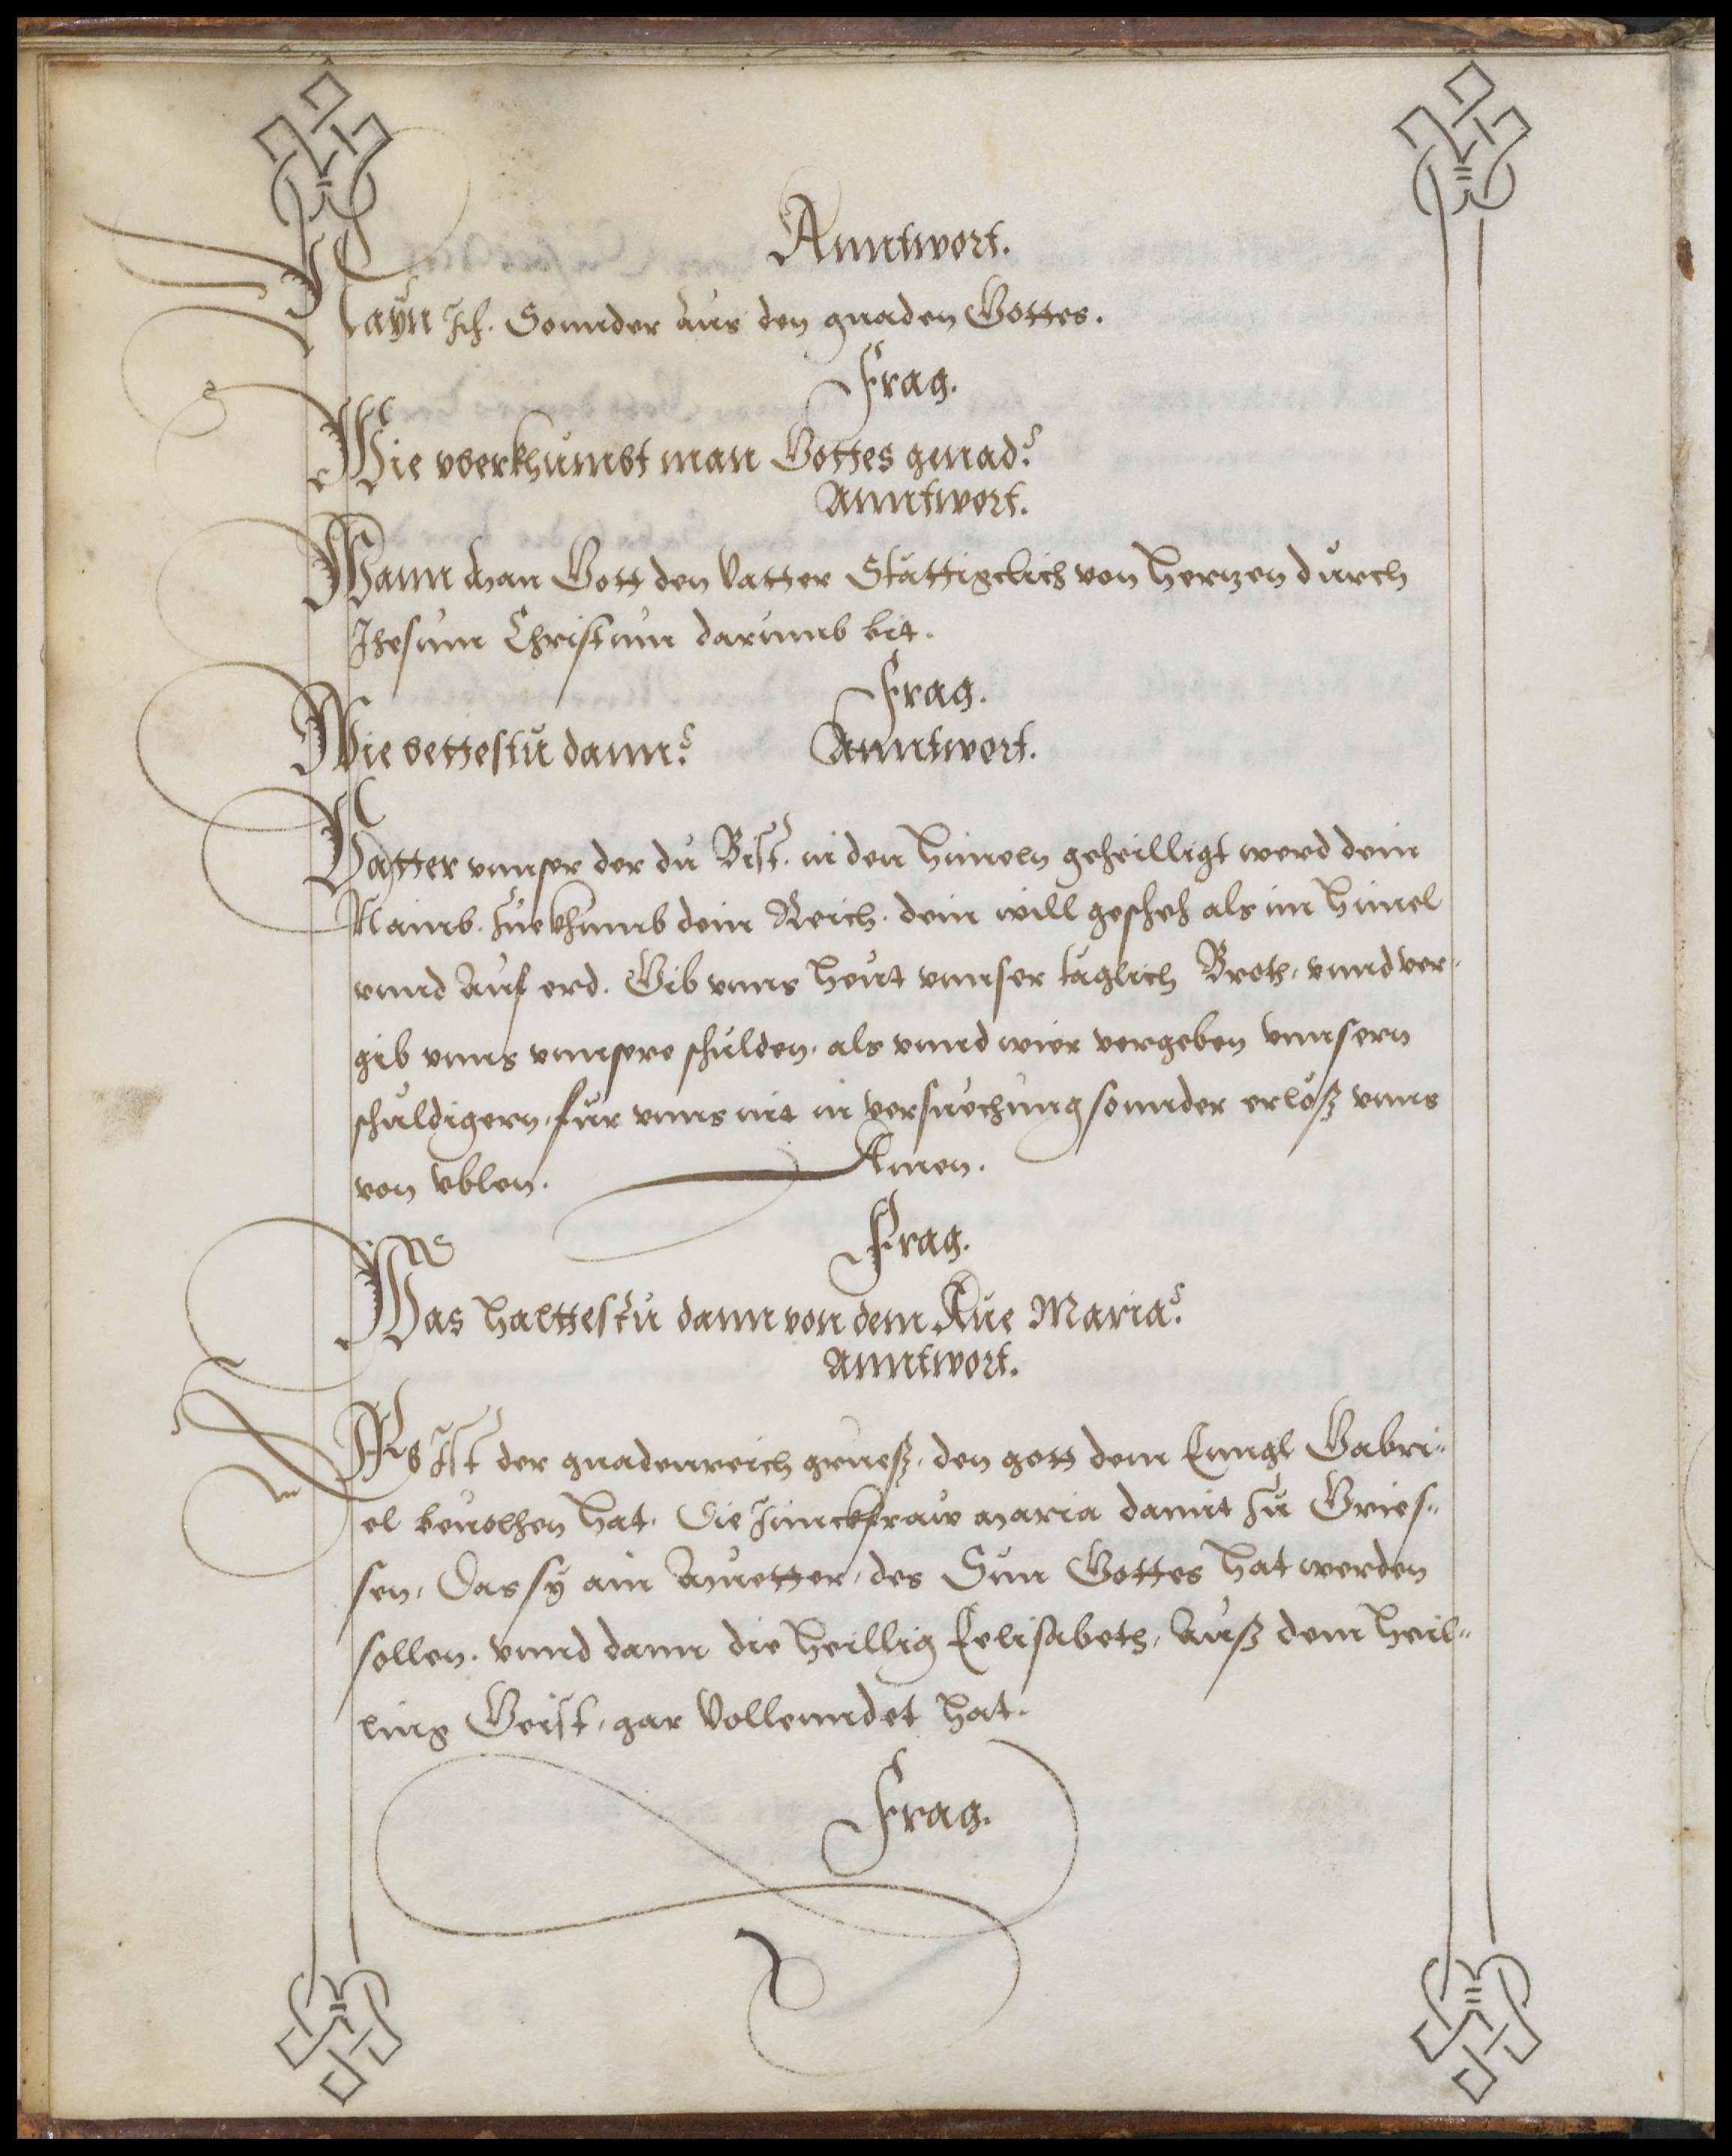 Anntwort.
Nayn Ich. Sonnder aus den gnaden Gottes.
Frag.
Wie vberkhumbt man Gottes gnnad?
Anntwort.
Wann man Gott den Vatter Stättigclich von hertzen durch
Jhesum Christum darumb bit.
Frag.
Wie bettestu dann?
Anntwort.
Vatter vnnser der du Bist. in den himeln geheilligt werd dein
Namb. Zuekhumb dein Reich. dein will gescheh als im himel
vnnd Auf erd. Gib vnns heut vnnser täglich Broth, vnnd ver¬
gib vnns vnnsere schulden, als vnnd wier vergeben vnnsern
schuldigern, für vnns nit in versuechung sonnder erlöß vnns
von vblen. Amen.
Frag.
Was halttestu dann von dem Aue Maria?
Anntwort.
Es Ist der gnadenreich grueß, den gott dem Enngl Gabri¬
el beuolhen hat, Die Junckfraw maria damit zu Gries¬
sen, Das sy ain Muetter, des Sun Gottes hat werden
sollen. vnnd dann die heillig Elisabeth, Auß dem heil¬
ling Geist, gar Vollenndet hat.
Frag.